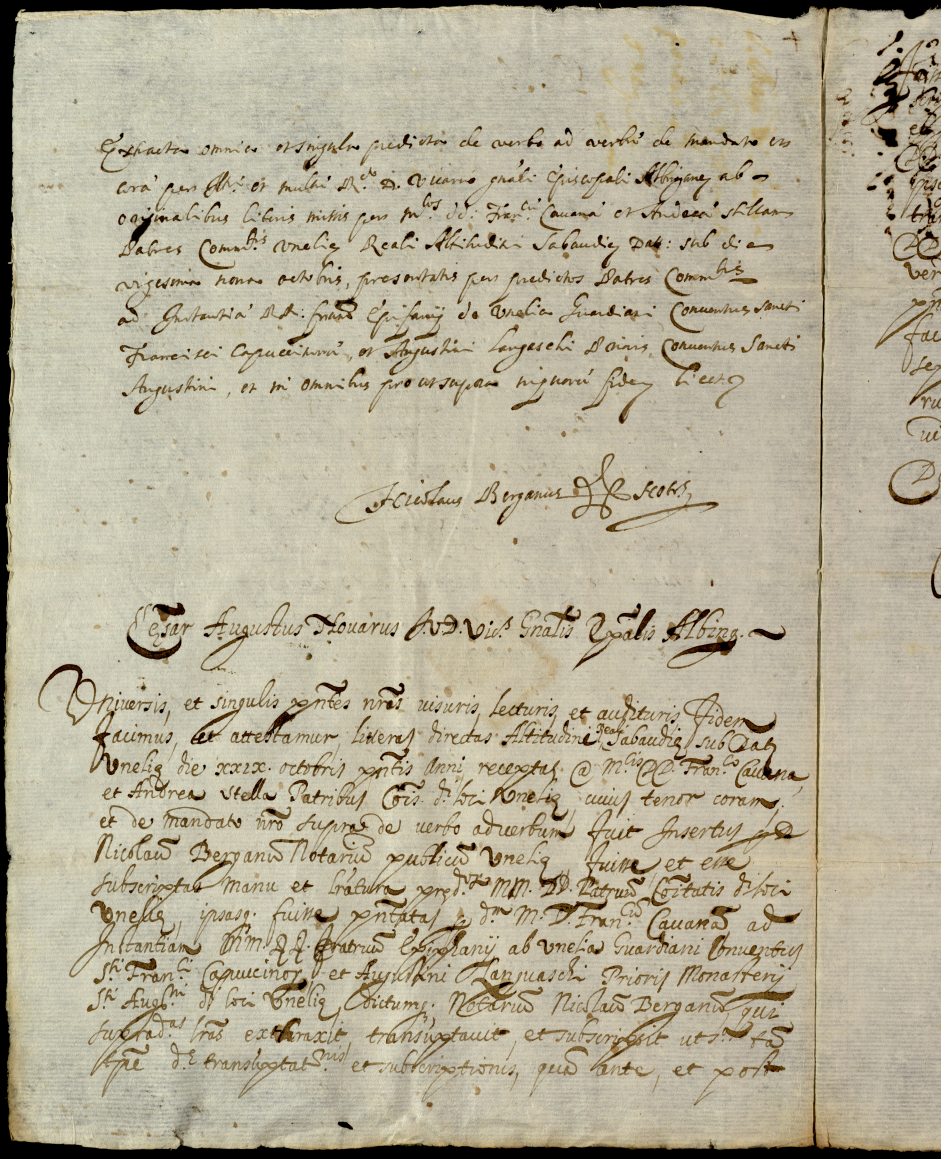 Extracta omnia et singula predicta de verbo ad verbū de mandato et
corā per Ill. et multū R.do D. Vicario gnāli Episcopali Albinganē ab
originalibus literis missis per m.cos dd: Fran.cū Cavanā et Andreā stellam
Patres Comm.tis Vnelię Reali Altitudini Sabaudię Datt: sub die
vigesima nona octobris, presentatis per predictos Patres Comm.tis
ad Instantiā RR. fratrū Epifanij de Vnelia Guardiani Conventus Sancti
Francisci Capuccinorū, et Augustini Langaschi Prioris Conventus Sancti
Augustini, et in omnibus prout supra in quorū fidem licet
Nicolaus Berganus Not.s
Cęsar Augustus Nouarus J.V.D. Vic.s Gnālis Epālis Albing.
Vniversis, et singulis pn̄tes nrās visuris, lecturis, et audituris, Fidem
facimus, et attestamur, literas directas Altitudini Reali Sabaudię sub Datę
Vnelię die xxix. octobris pn̄tis Anni receptas @ M.cis DD. Fran.co Cavana,
et Andrea Stella Patribus Cōis d.i loci Vnelię, cuius tenor coram,
et de mandato nrō supra de verbo ad verbum fuit Insertus p D
Nicolaū Berganū Notariū publicū Vnelię fuisse, et esse
subscriptas manu et lrātura pred. MM. DD. Patrum Cōitatis d.i loci
Vnelię, ipsasq. fuisse pn̄tatas p d.m M. D. Fran.cū Cavanā, ad
Instantiam RR. Fratrum Epiphanij ab Vnelia Guardiani Conventus
S.ti Fran.ci Capuccinor. et Augustini Languaschi Prioris Monasterij
S.ti Aug.ni d.i loci Vnelię, dictumq. Notariū Nicolaū Berganū qui
suprad.as lrās extraxit, transūptavit, et subscripsit ut s.a tā
tpē d.ę transūptat.nis et subscriptionis, quā ante, et post